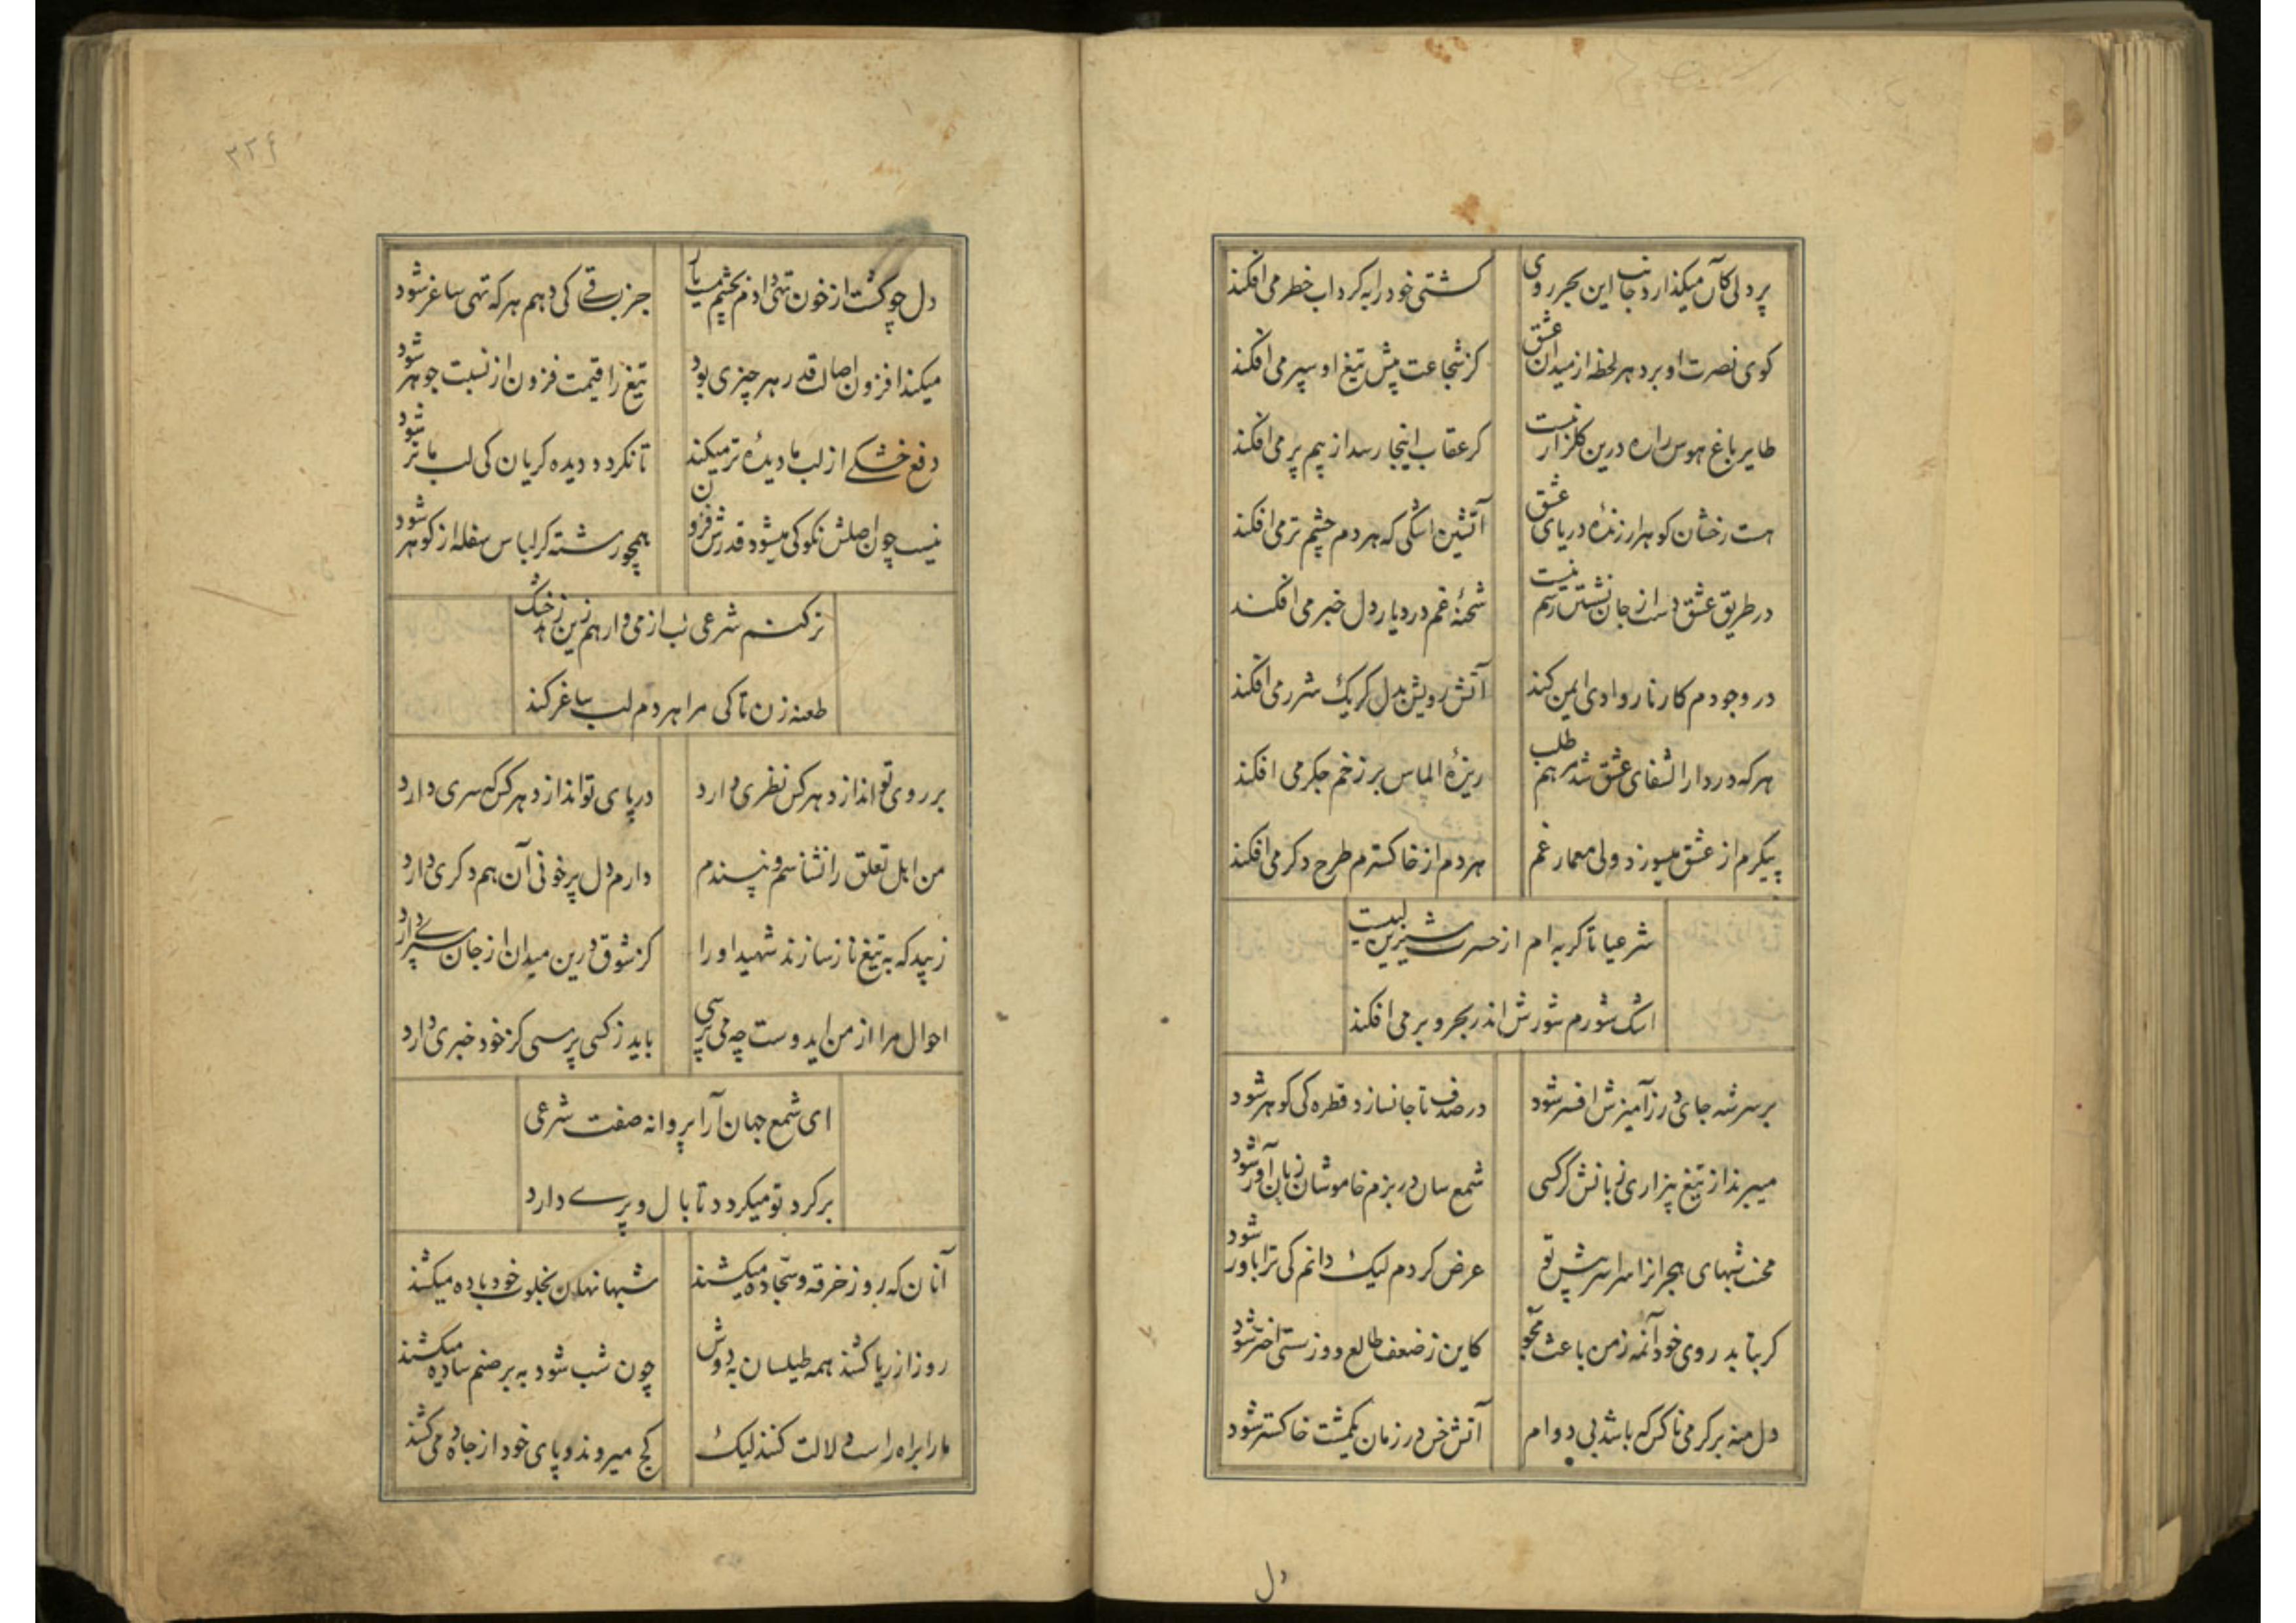 پردلی کان میکذارد جانب این بحر روی کشتی خود را به کرداب خطر می افکند
کوی نصرت او برد هر لحظه از میدان عشق کز شجاعت پیش تیغ او سپر می افکند
طایر باغ هوس را ره درین کلزار نیست کر عقاب اینجا رسد از بیم پر می افکند
هست رخشان کوهر ارزندهٔ دریای عشق آتشین اشکی که هر دم چشم تر می افکند
در طریق عشق دست از جان نشستن رسم نیست شحنهٔ غم در دیار دل خبر می افکند
در وجودم کار نار وادی ایمن کند آتش رویش بدل کر یک شرر می افکند
هر که در دار الشفای عشق شد مرهم طلب ریزهٔ الماس بر زخم جکر می افکند
پیکرم از عشق میسوزد ولی معمار غم هر دم از خاکسترم طرح دکر می افکند
شرعیا تا کریه ام از حسرت شیرین لبیست
اشک شورم شورش اندر بحر و بر می افکند
بر سر شه جای در زآمیزش افسر شود در صدف تا جا نسازد قطره کی کوهر شود
میبرند از تیغ بیزاری زبانش کر کسی شمع سان در بزم خاموشان زبان آور شود
محنت شبهای هجرانرا سراسر پیش تو عرض کردم لیک دانم کی ترا باور شود
کر بتابد روی خود آنمه ز من باعث مجو کاین ز ضعف طالع و وز سستی اختر شود
دل منه بر کرمی ناکس که باشد بی دوام آتش خس در زمان یکمشت خاکستر شود
دل
۲۲۶
دل چو کشت از خون تهی دادم بچشم میار جز برقی کی دهم هر که تهی ساغر شود
میکند افزون اصالت قدر هر چیزی بود تیغ را قیمت فزون از نسبت جوهر شود
دفع خشکی از لب ما دیدهٔ تر میکند تا نکردد دیده کریان کی لب ما تر شود
نیست چون اصلش نکو کی میشود قدرش فزون همچو رشته کر لباس سفله از کوهر شود
ترکنم شرعی لب از می وارهم زین زهد خشک
طعنه زن تا کی مرا هر دم لب ساغر کند
بر روی تو اندازد هر کس نظری دارد در پای تو اندازد هر کس که سری دارد
من اهل تعلق را نشناسم و نپسندم دارم دل پر خونی آن هم دکری دارد
زیبد که به تیغ ناز سازند شهید او را کز شوق درین میدان از جان سپری دارد
احوال مرا از من ایدوست چه می پرسی باید ز کسی پرسی کز خود خبری دارد
ای شمع جهان آرا پروانه صفت شرعی
بر کرد تو میکردد تا بال و پری دارد
آنان که روز خرقه و سجاده میکشند شبها نهان بخلوت خود باده میکشند
روز از ریا کشند همه طیلسان به دوش چون شب شود به بر صنم ساده میکشند
ما را براه راست دلالت کنند لیک کج میروند و پای خود از جاده می کشند